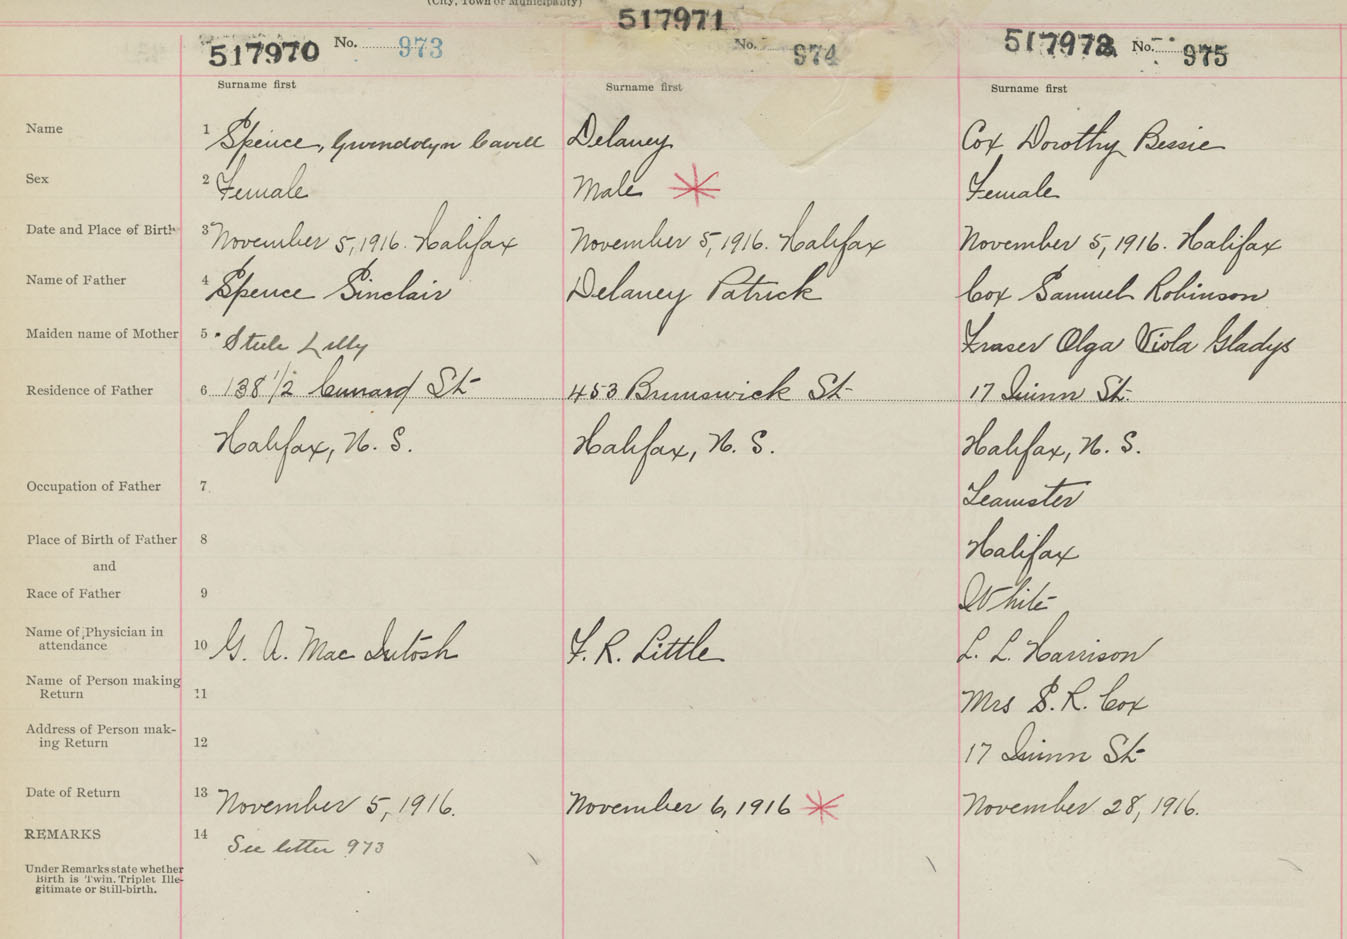 (City, Town or Municipality)
517970 No. 973
517971 No. 974
517972 No. 975
Surname first Surname first Surname first
Name 1 Spence, Gwendolyn Cavell Delaney Cox Dorothy Bessie
Sex 2 Female Male Female
Date and Place of Birth 3 November 5, 1916. Halifax November 5, 1916. Halifax November 5, 1916. Halifax
Name of Father 4 Spence Sinclair Delaney Patrick Cox Samuel Robinson
Maiden name of Mother 5 Steele Lilly Fraser Olga Viola Gladys
Residence of Father 6 138 1/2 Cunard St 453 Brunswick St 17 Quinn St.
Halifax, N. S. Halifax, N. S. Halifax, N. S.
Occupation of Father 7 Teamster
Place of Birth of Father 8 Halifax
and
Race of Father 9 White
Name of Physician in
attendance 10 G. A. Mac Intosh F. R. Little L. L. Harrison
Name of Person making
Return 11 Mrs S. R. Cox
Address of Person mak-
ing Return 12 17 Quinn St
Date of Return 13 November 5, 1916. November 6, 1916 November 28, 1916.
REMARKS 14 See letter 973
Under Remarks state whether
Birth is Twin. Triplet Ille-
gitimate or Still-birth.